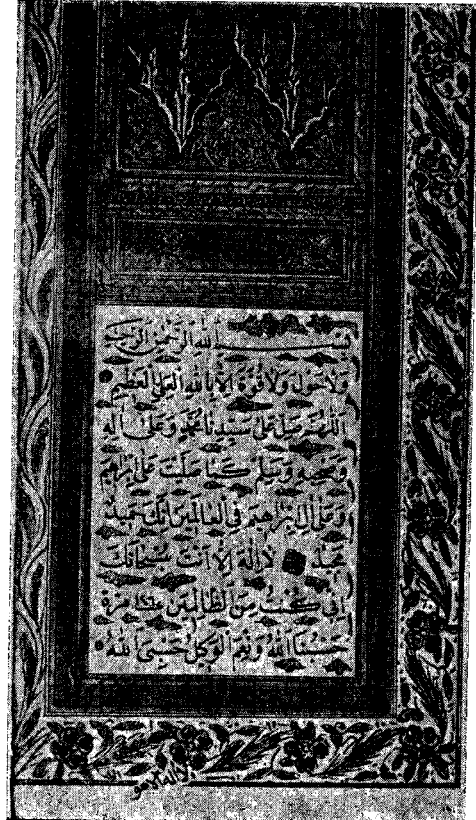 بسم الله الرحمن الرحيم
ولا حول ولا قوة الا بالله العلي العظيم
اللهم صل على سيدنا محمد وعلى آله
وصحبه وسلم كما صليت على ابراهيم
وعلى آل ابراهيم في العالمين انك حميد
مجيد لا إله إلا أنت سبحانك
اني كنت من الظالمين مرة
حسبنا الله ونعم الوكيل حسبي الله